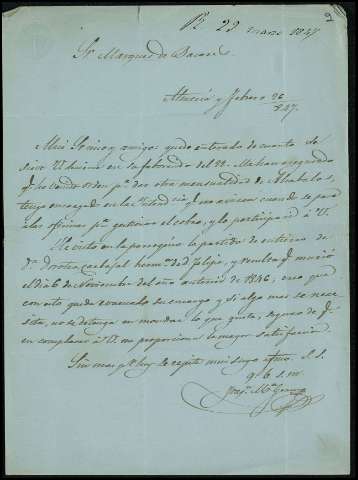 R. 29 marzo 1847
Sr Marques de Bacares.
Almeria y Febrero 26
/847.
Mui Sr mio y amigo: quedo enterado de cuanto se
sirve V. en su favorecida del 22. Me han asegurado
q. ha venido orden pa dar otra mensualidad de
tengo encargado en la q. me avisen cuando se pa
oficinas pa gestionar el cobro, y lo participaré a V.
He visto en la parroquia la partida de entierro de
Da Carbajal herma de Dn Felipe, y resulta q. murió
el dia 6 de Noviembre del año anterior de 1846, creo que
con esto queda evacuado su encargo y si algo mas se nece
sita, no se detenga en mandar lo que guste, seguro de q.
en complacer à V. me proporciona la mayor satisfaccion.
Sin mas pr hoy se repite mui suyo afmo. S. S.
q. b. s. m.
Ma